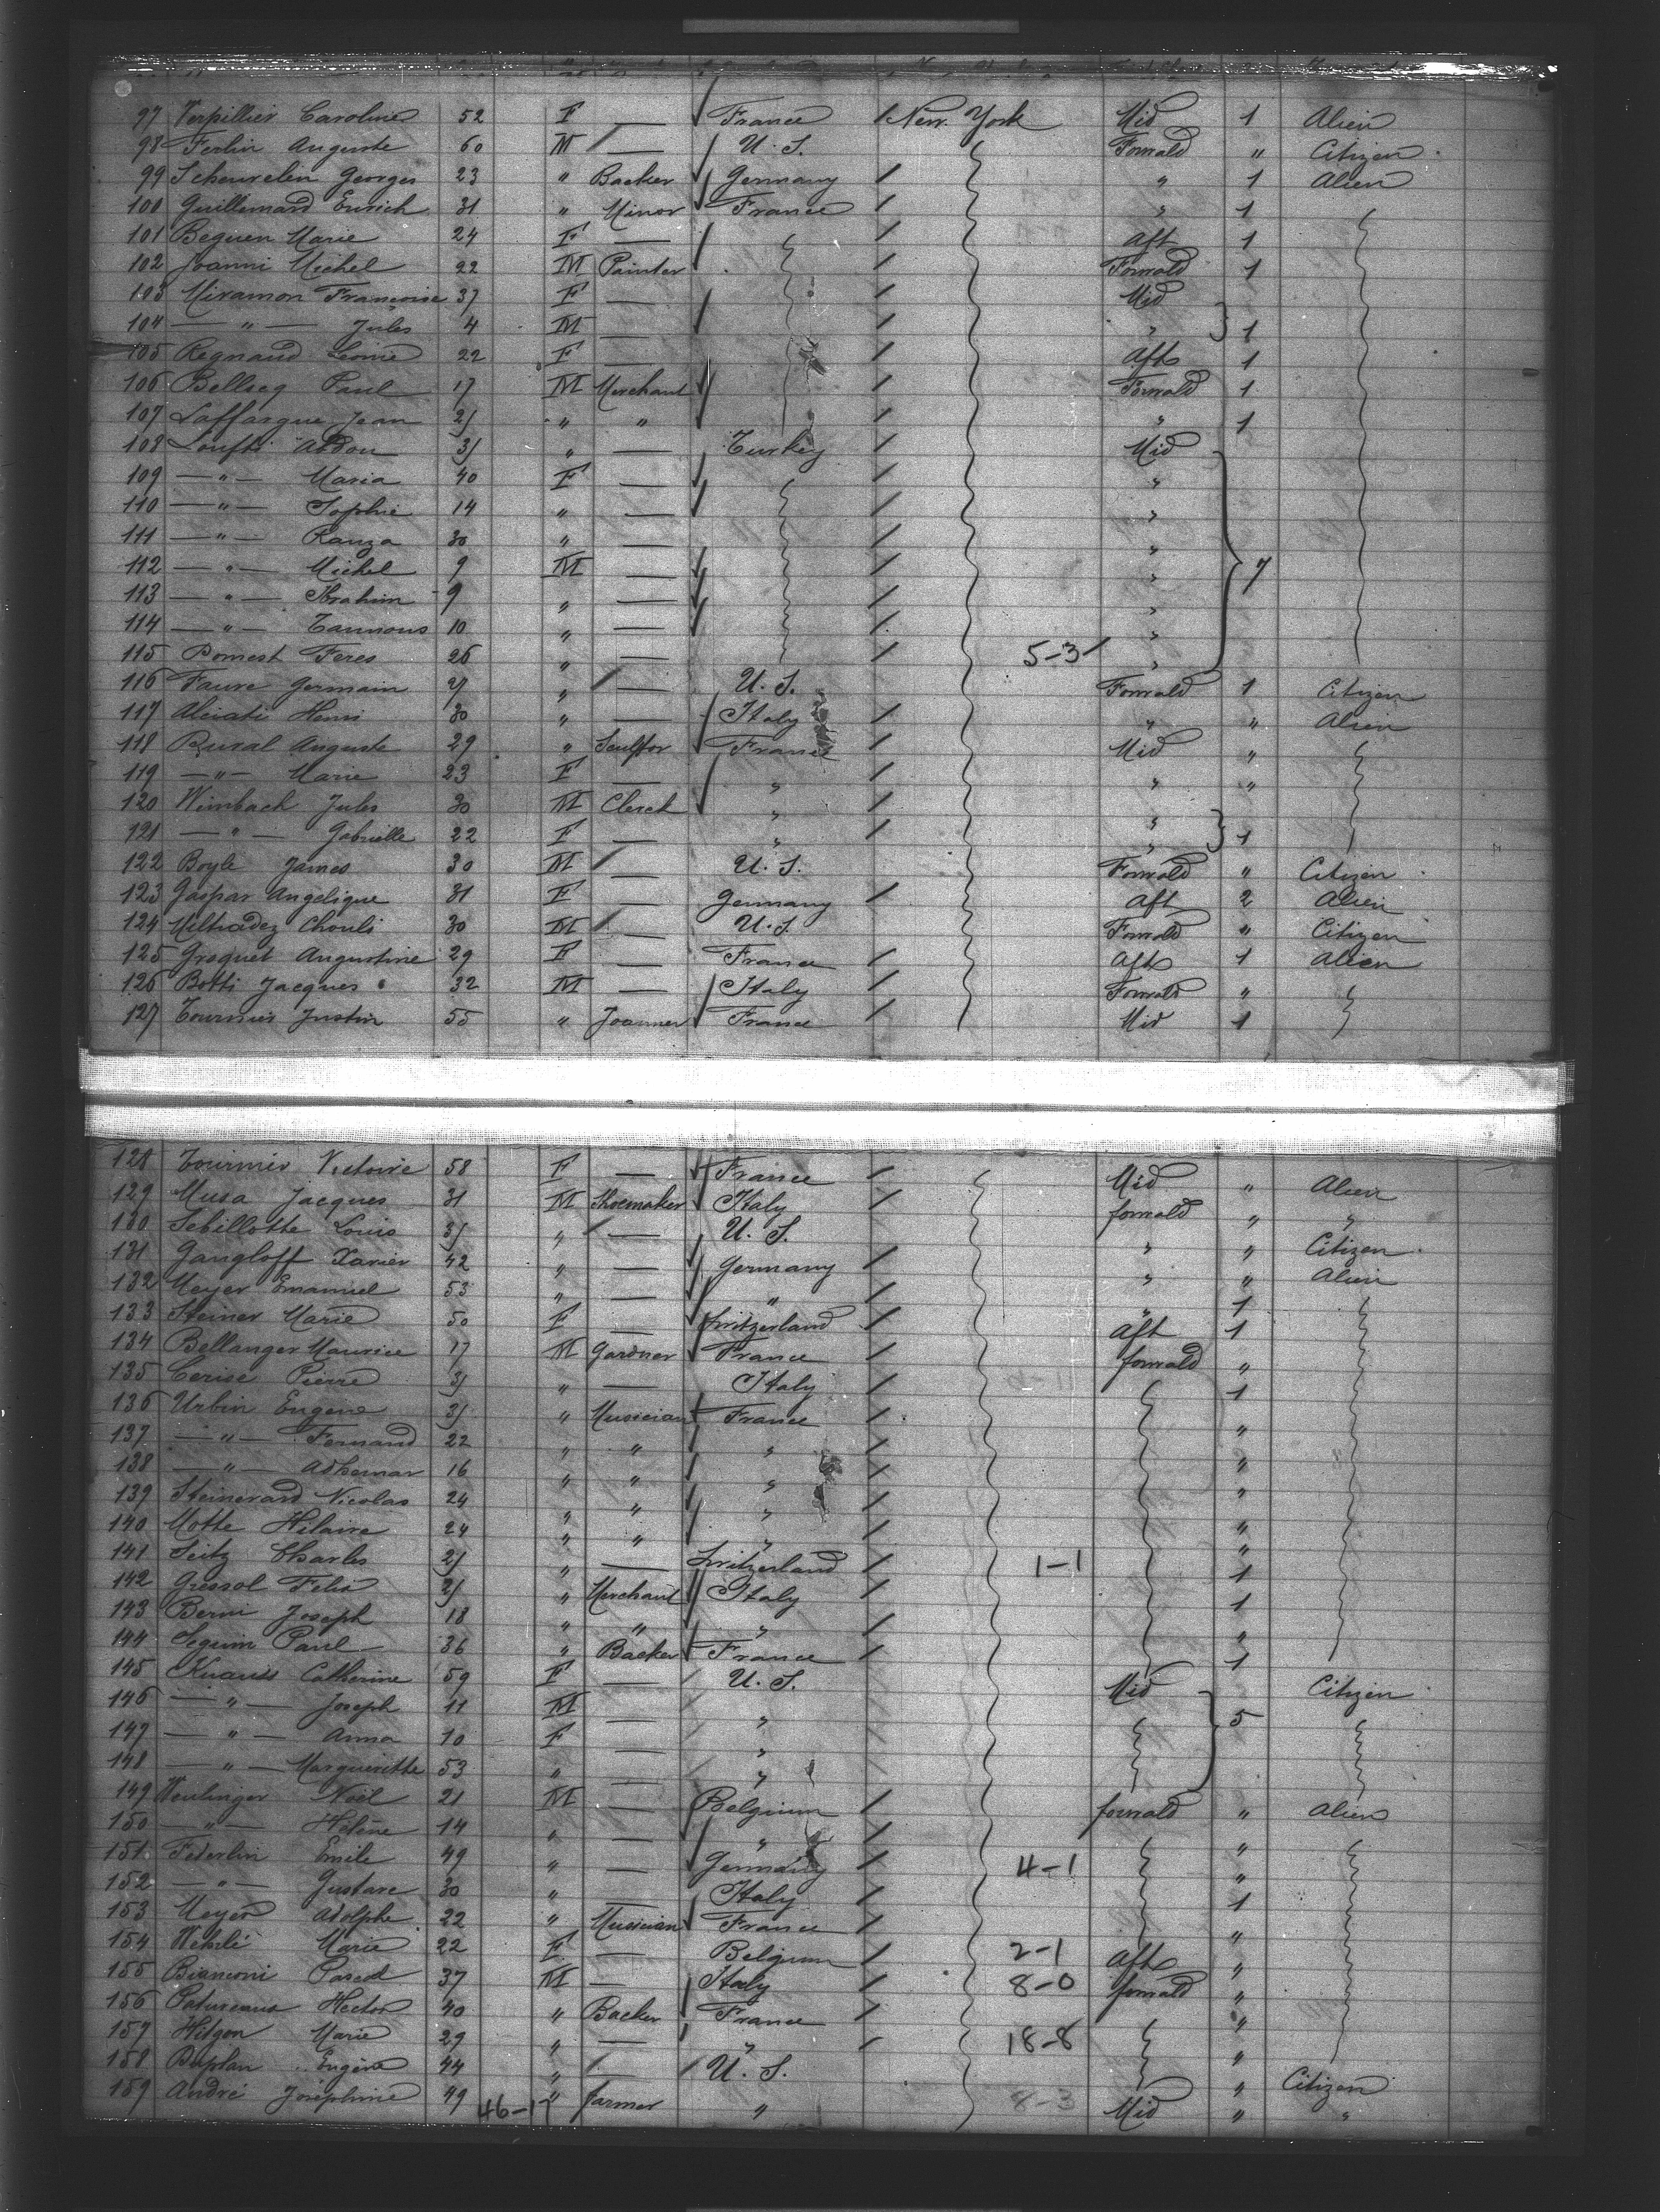 97 Verpillier Caroline 52 F — France New York Mid 1 Alien
98 Ferlin Auguste 60 M — U.S. Forwald " Citizen
99 Scheurelin Georges 23 " Backer Germany " 1 Alien
100 Guillemard Enrich 31 " Minor France " 1
101 Beguen Marie 24 F — Aft 1
102 Joanni Michel 22 M Painter Forwald 1
103 Miramon Françoise 37 F — Mid
104 — " — Jules 4 M — " 1
105 Regnaud Leonie 22 F — Aft 1
106 Bellseg Paul 17 M Merchant Forwald 1
107 Laffargue Jean 21 " " " 1
108 Loufti Abdou 31 " — Turkey Mid
109 — " — Maria 40 F — "
110 — " — Sophie 14 " — "
111 — " — Ranza 30 " — "
112 — " — Michel 9 M — " 7
113 — " — Ibrahim 9 " — "
114 — " — Tannous 10 " — "
115 Domest Feres 26 " — 5-3 "
116 Faure Germain 27 " — U.S. Forwald 1 Citizen
117 Alciati Henri 30 " — Italy " " Alien
118 Rural Auguste 29 " Sculptor France Mid "
119 — " — Marie 23 F — " " "
120 Weinbach Jules 30 M Clerck " "
121 — " — Gabrielle 22 F — " " 1
122 Boyle James 30 M — U.S. Forwald " Citizen
123 Gaspar Angelique 31 F — Germany Aft 2 Alien
124 Miltiadez Chouli 30 M — U.S. Forwald " Citizen
125 Groquet Augustine 29 F — France Aft 1 Alien
126 Botti Jacques 32 M — Italy Forwald "
127 Tournier Justin 55 " Joanner France Mid 1
128 Tournier Victoire 58 F — France Mid " Alien
129 Musa Jacques 31 M Shoemaker Italy forwald " "
130 Sebillotte Louis 31 " — U.S. " " Citizen
131 Gangloff Xavier 42 " — Germany " " Alien
132 Meyer Emanuel 53 " — " " 1
133 Steiner Marie 50 F — Switzerland Aft 1
134 Bellanger Maurice 17 M Gardner France forwald "
135 Cerise Pierre 31 " — Italy 1
136 Urbin Eugene 31 " Musician France "
137 — " — Fernand 22 " " " "
138 — " — Adhemar 16 " " " "
139 Steinerard Nicolas 24 " " " "
140 Motte Hilaire 24 " " " "
141 Seitz Charles 21 " — Switzerland 1-1 1
142 Gressol Felix 21 " Merchant Italy 1
143 Berni Joseph 18 " " " "
144 Seguin Paul 36 " Backer France 1
145 Knauss Catherine 59 F — U.S. Mid Citizen
146 — " — Joseph 11 M — " 5
147 — " — Anna 10 F — "
148 — " — Margueritte 53 " — "
149 Weulinger Noël 21 M — Belgium forwald " Alien
150 — " — Hélène 14 " — " "
151 Federlin Emile 49 " — Germany 4-1 "
152 — " — Gustave 30 " — Italy 1
153 Meyer Adolphe 22 " Musician France "
154 Wehrlé Marie 22 F — Belgium 2-1 Aft "
155 Bianconi Pascal 37 M — Italy 8-0 forwald "
156 Patureaux Hector 40 " Backer France "
157 Hilgon Marie 29 " — " 18-8 "
158 Duplan Eugène 44 " — U.S. " Citizen
159 André Joséphine 49 46-17 " farmer " 8-3 Mid " "